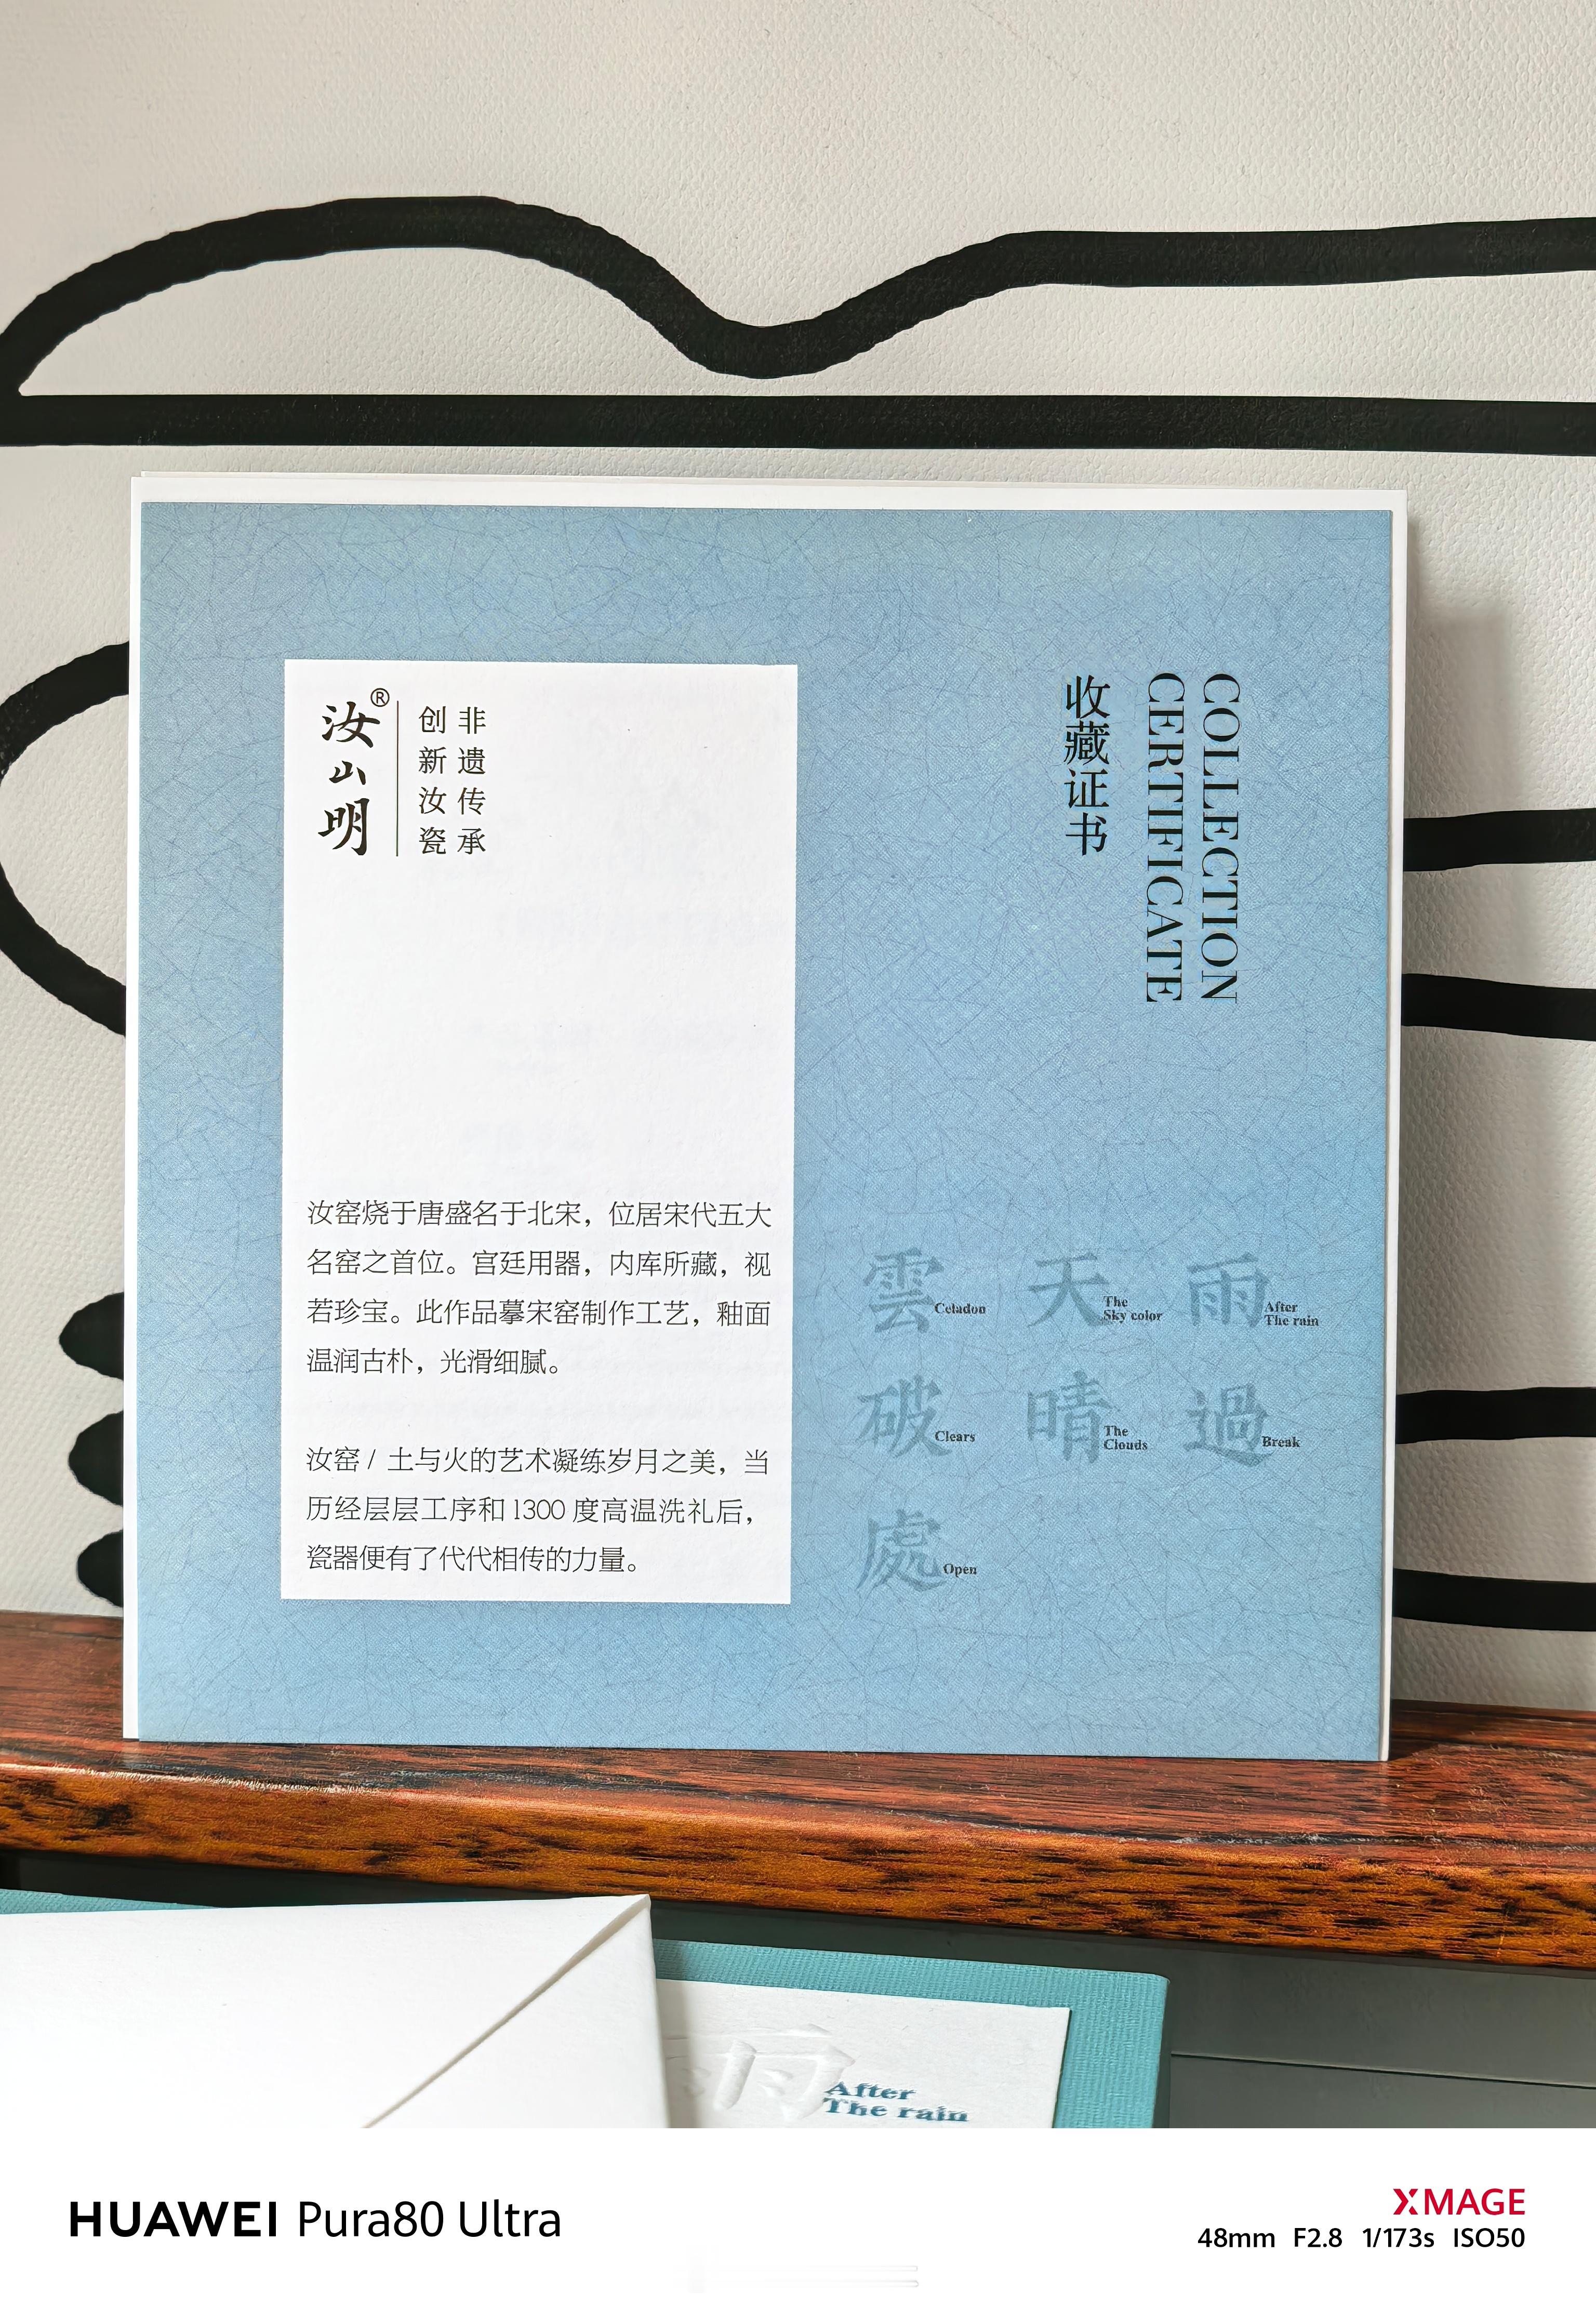 汝山明®
非遗传承
创新汝瓷
汝窑烧于唐盛名于北宋，位居宋代五大
名窑之首位。宫廷用器，内库所藏，视
若珍宝。此作品摹宋窑制作工艺，釉面
温润古朴，光滑细腻。
汝窑 / 土与火的艺术凝练岁月之美，当
历经层层工序和1300 度高温洗礼后，
瓷器便有了代代相传的力量。
COLLECTION
CERTIFICATE
收藏证书
雨
After
The rain
過
Break
天
The
Sky color
晴
The
Clouds
雲
Celadon
破
Clears
處
Open
After
The rain
HUAWEI Pura80 Ultra
XMAGE
48mm F2.8 1/173s ISO50